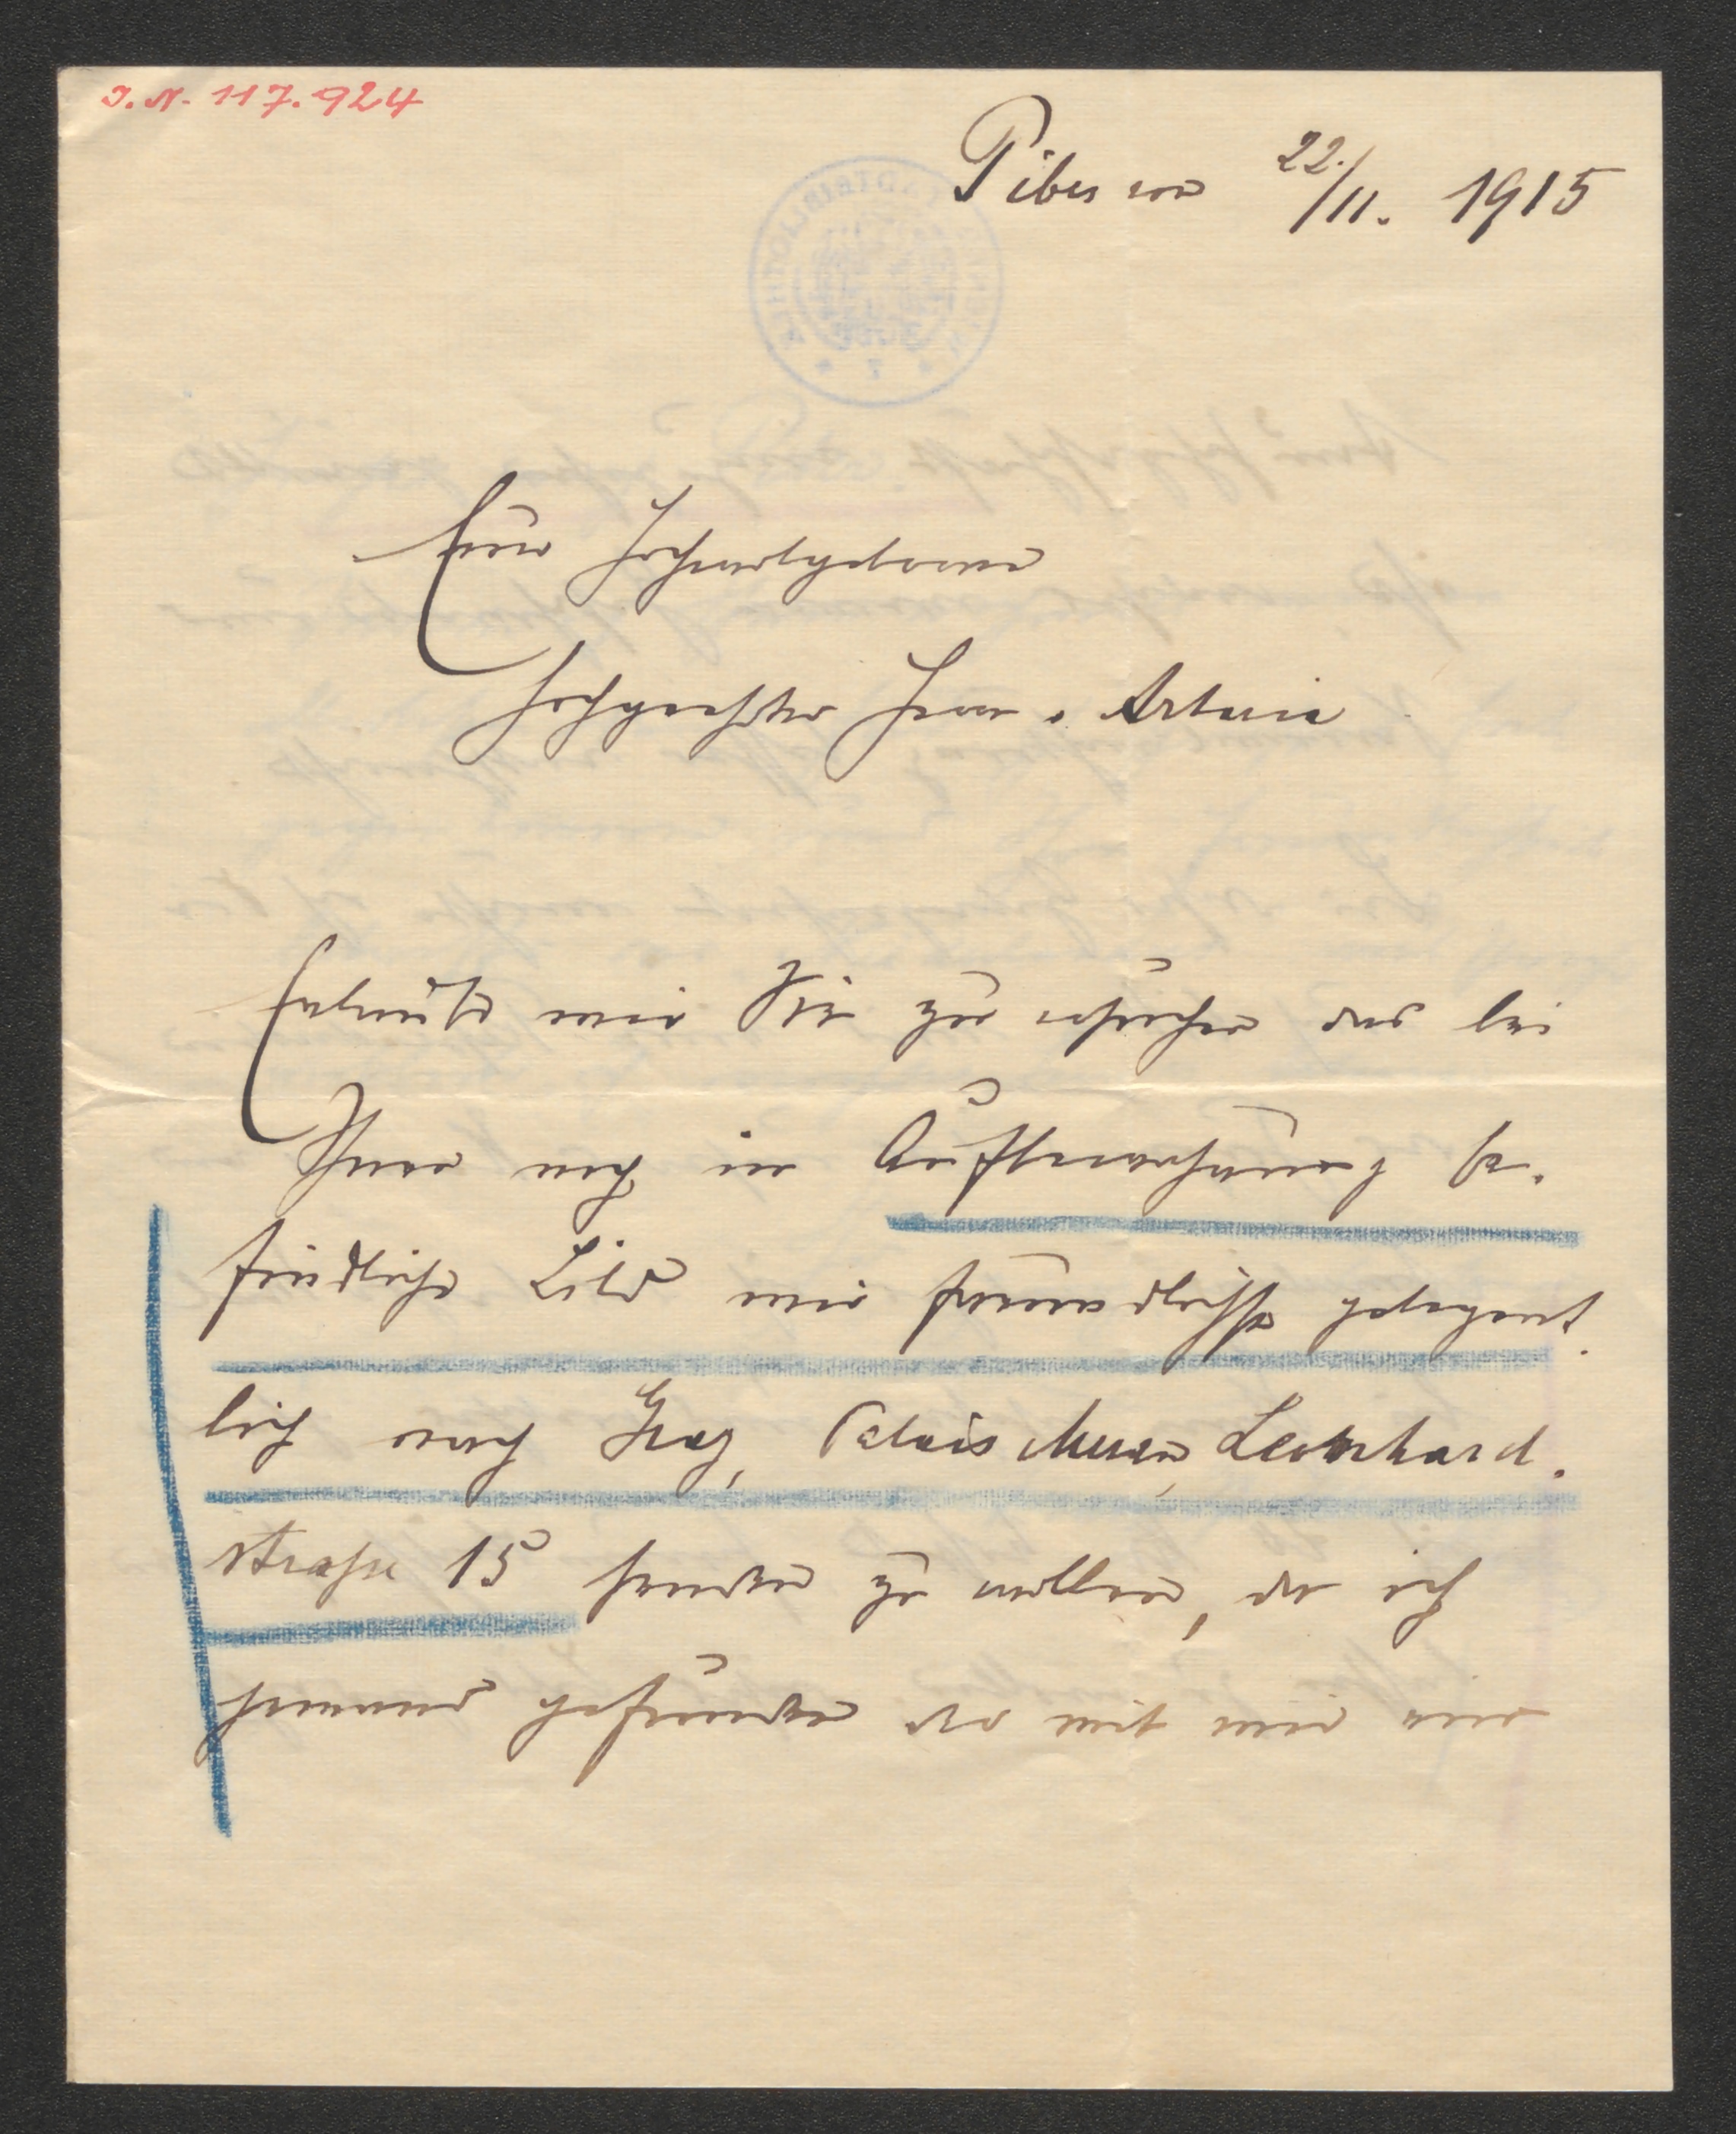 I. N. 117.924
Piber am 22./11. 1915
Euer Hochwohlgeboren
Hochgeehrter Herr v. Artaria
Erlaube mir Sie zu ersuchen das bei
Ihnen noch in Aufbewahrung be-
findliche Bild mir freundlichst gelegent-
lich nach Graz, Palais Meran, Leonhard-
straße 15 senden zu wollen, da ich
jemand gefunden der mit mir ein